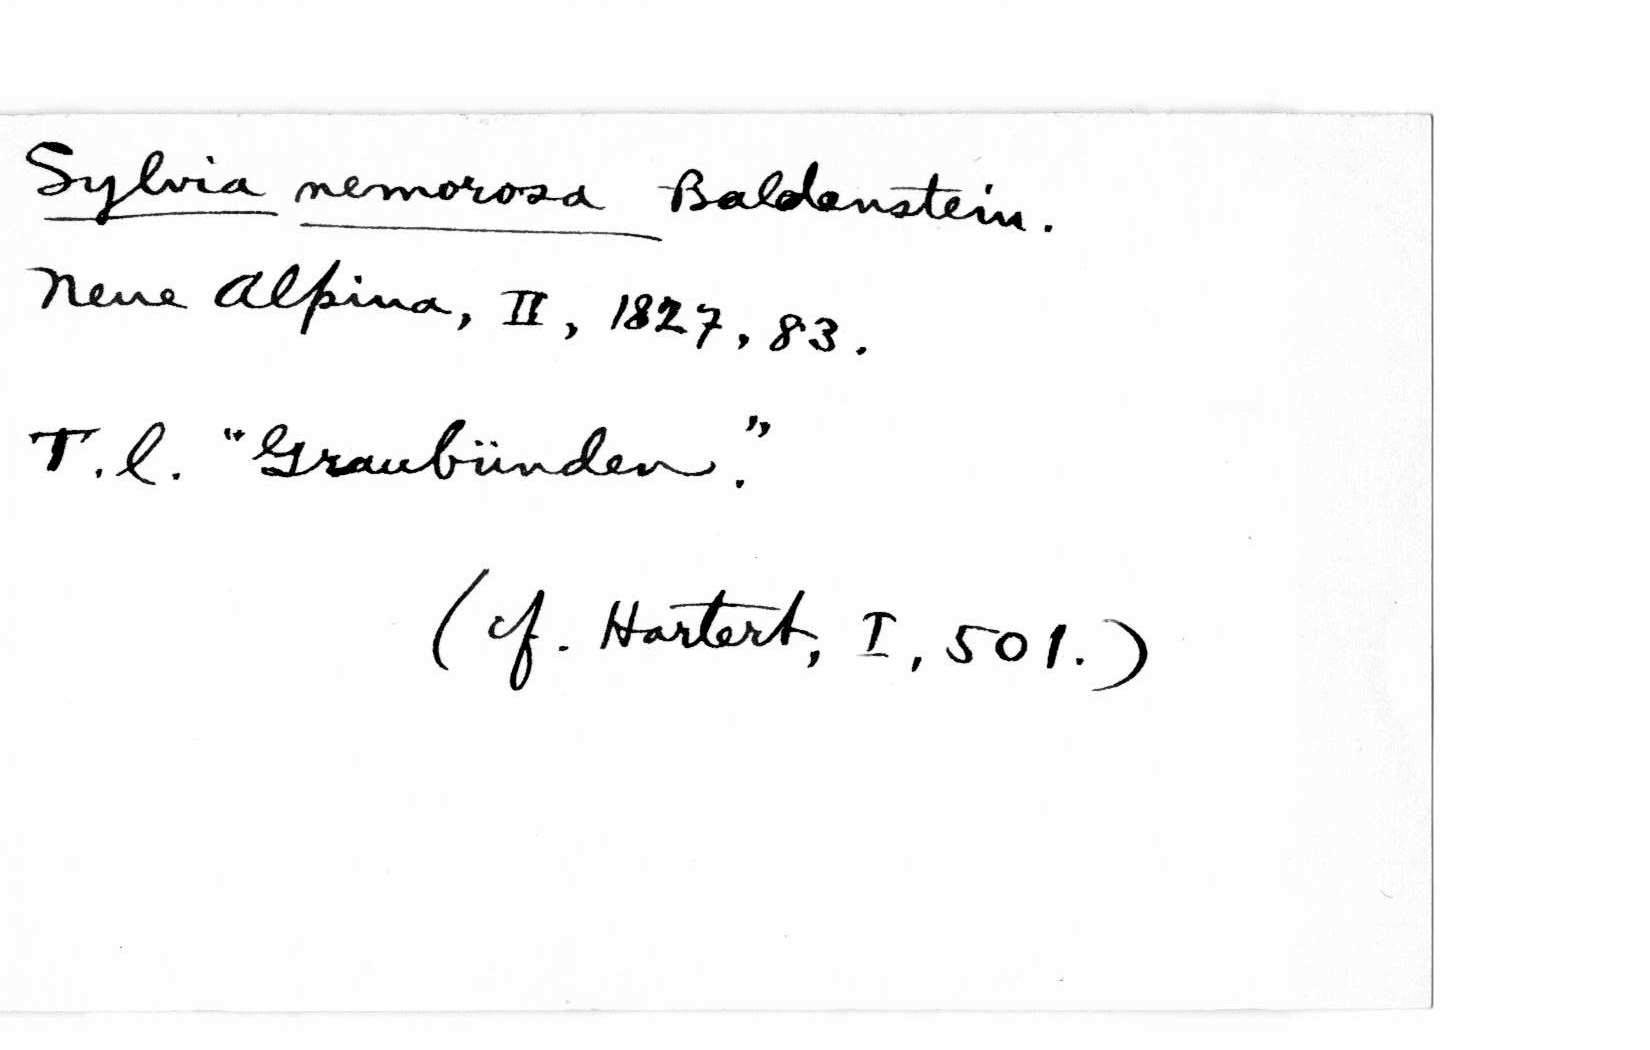 Sylvia nemorosa Baldenstein.
Neue Alpina, II, 1827, 83.
T.l. "Graubünden."
(cf. Hartert, I, 501.)